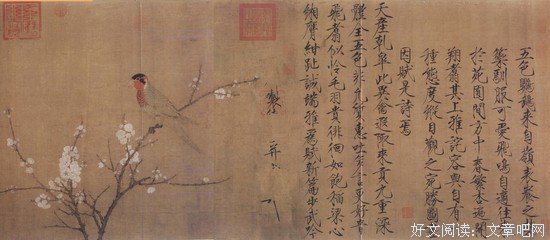 五色鸚鵡来自嶺表養之
籞馴服可愛飛鳴自適往
於苑囿間方中春繁杏遍開
翔翥其上雅詫容與自有
種態度縱目觀之宛勝圖
因賦是詩焉
天産乾皋此異禽遐陬来貢九重深
體全五色非凡質惠吐多言更好音
飛翥似憐毛羽貴徘徊如飽稻粱心
緗膺紺趾誠端雅為賦新篇步武吟
製
并
好文阅读：文章吧网